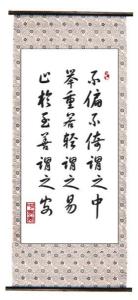 不偏不倚謂之中
舉重若輕謂之易
止於至善謂之安